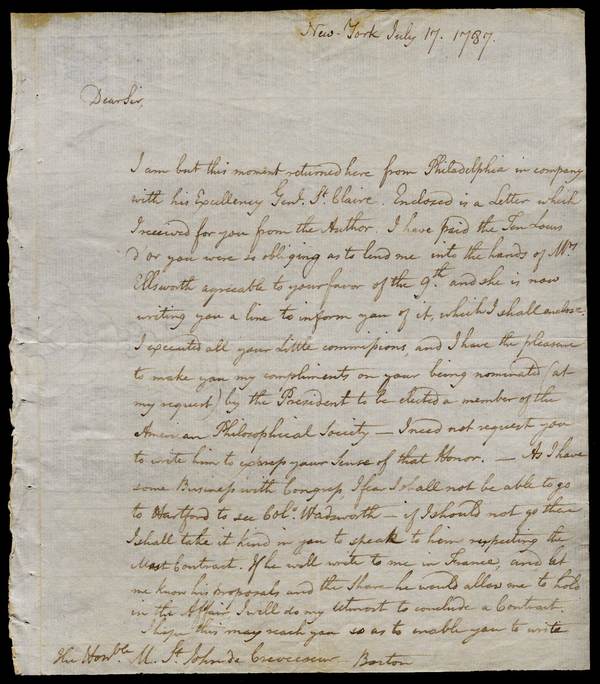 New-York July 17. 1787.
Dear Sir,
I am but this moment returned here from Philadelphia in company
with his Excellency Genl. St. Claire. Enclosed is a Letter which
I received for you from the Author. I have paid the Ten Louis
d'or you were so obliging as to lend me into the hands of Mrs
Ellsworth agreeable to your favor of the 9th. and she is now
writing you a line to inform you of it, which I shall enclose.
I executed all your little commissions, and I have the pleasure
to make you my compliments on your being nominated (at
my request) by the President to be elected a member of the
American Philosophical Society — I need not request you
to write him to express your Sense of that Honor. — As I have
some Business with Congress, I fear I shall not be able to go
to Hartford to see Colo. Wadsworth — if I should not go there
I shall take it kind in you to speak to him respecting the
Mast Contract. If he will write to me in France, and let
me know his proposals, and the Share he would allow me to hold
in the Affair I will do my utmost to conclude a Contract.
I hope this may reach you so as to enable you to write
The Honble. M. St. John de Crevecoeur Boston